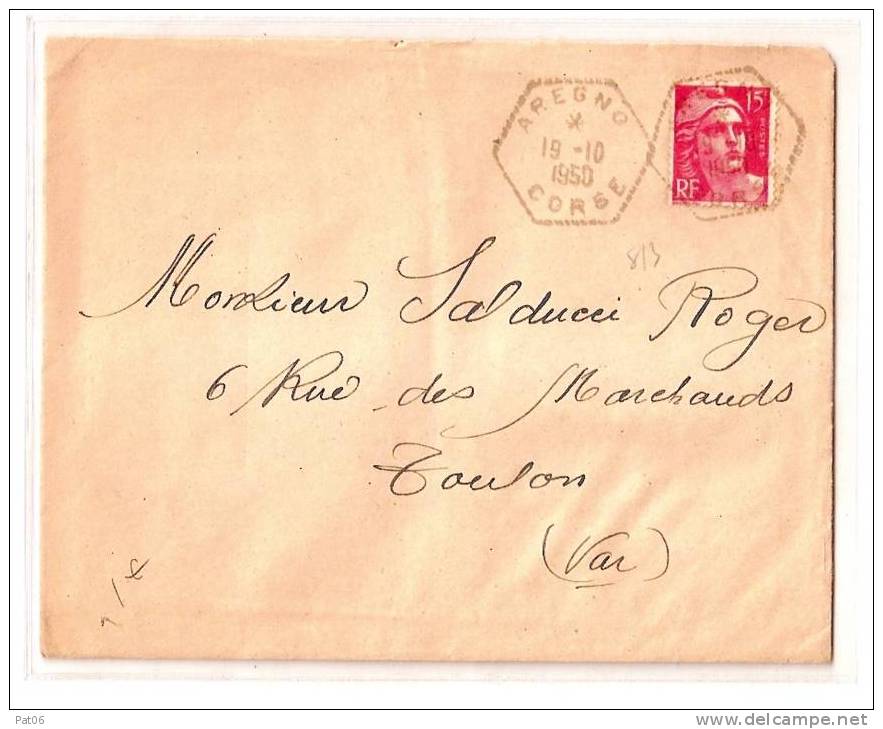 AREGNO
19 -10
1950
CORSE
15F
POSTES
RF
8/3
Monsieur Salducci Roger
6 Rue des Marchands
Toulon
(Var)
Pat06
www.delcampe.net